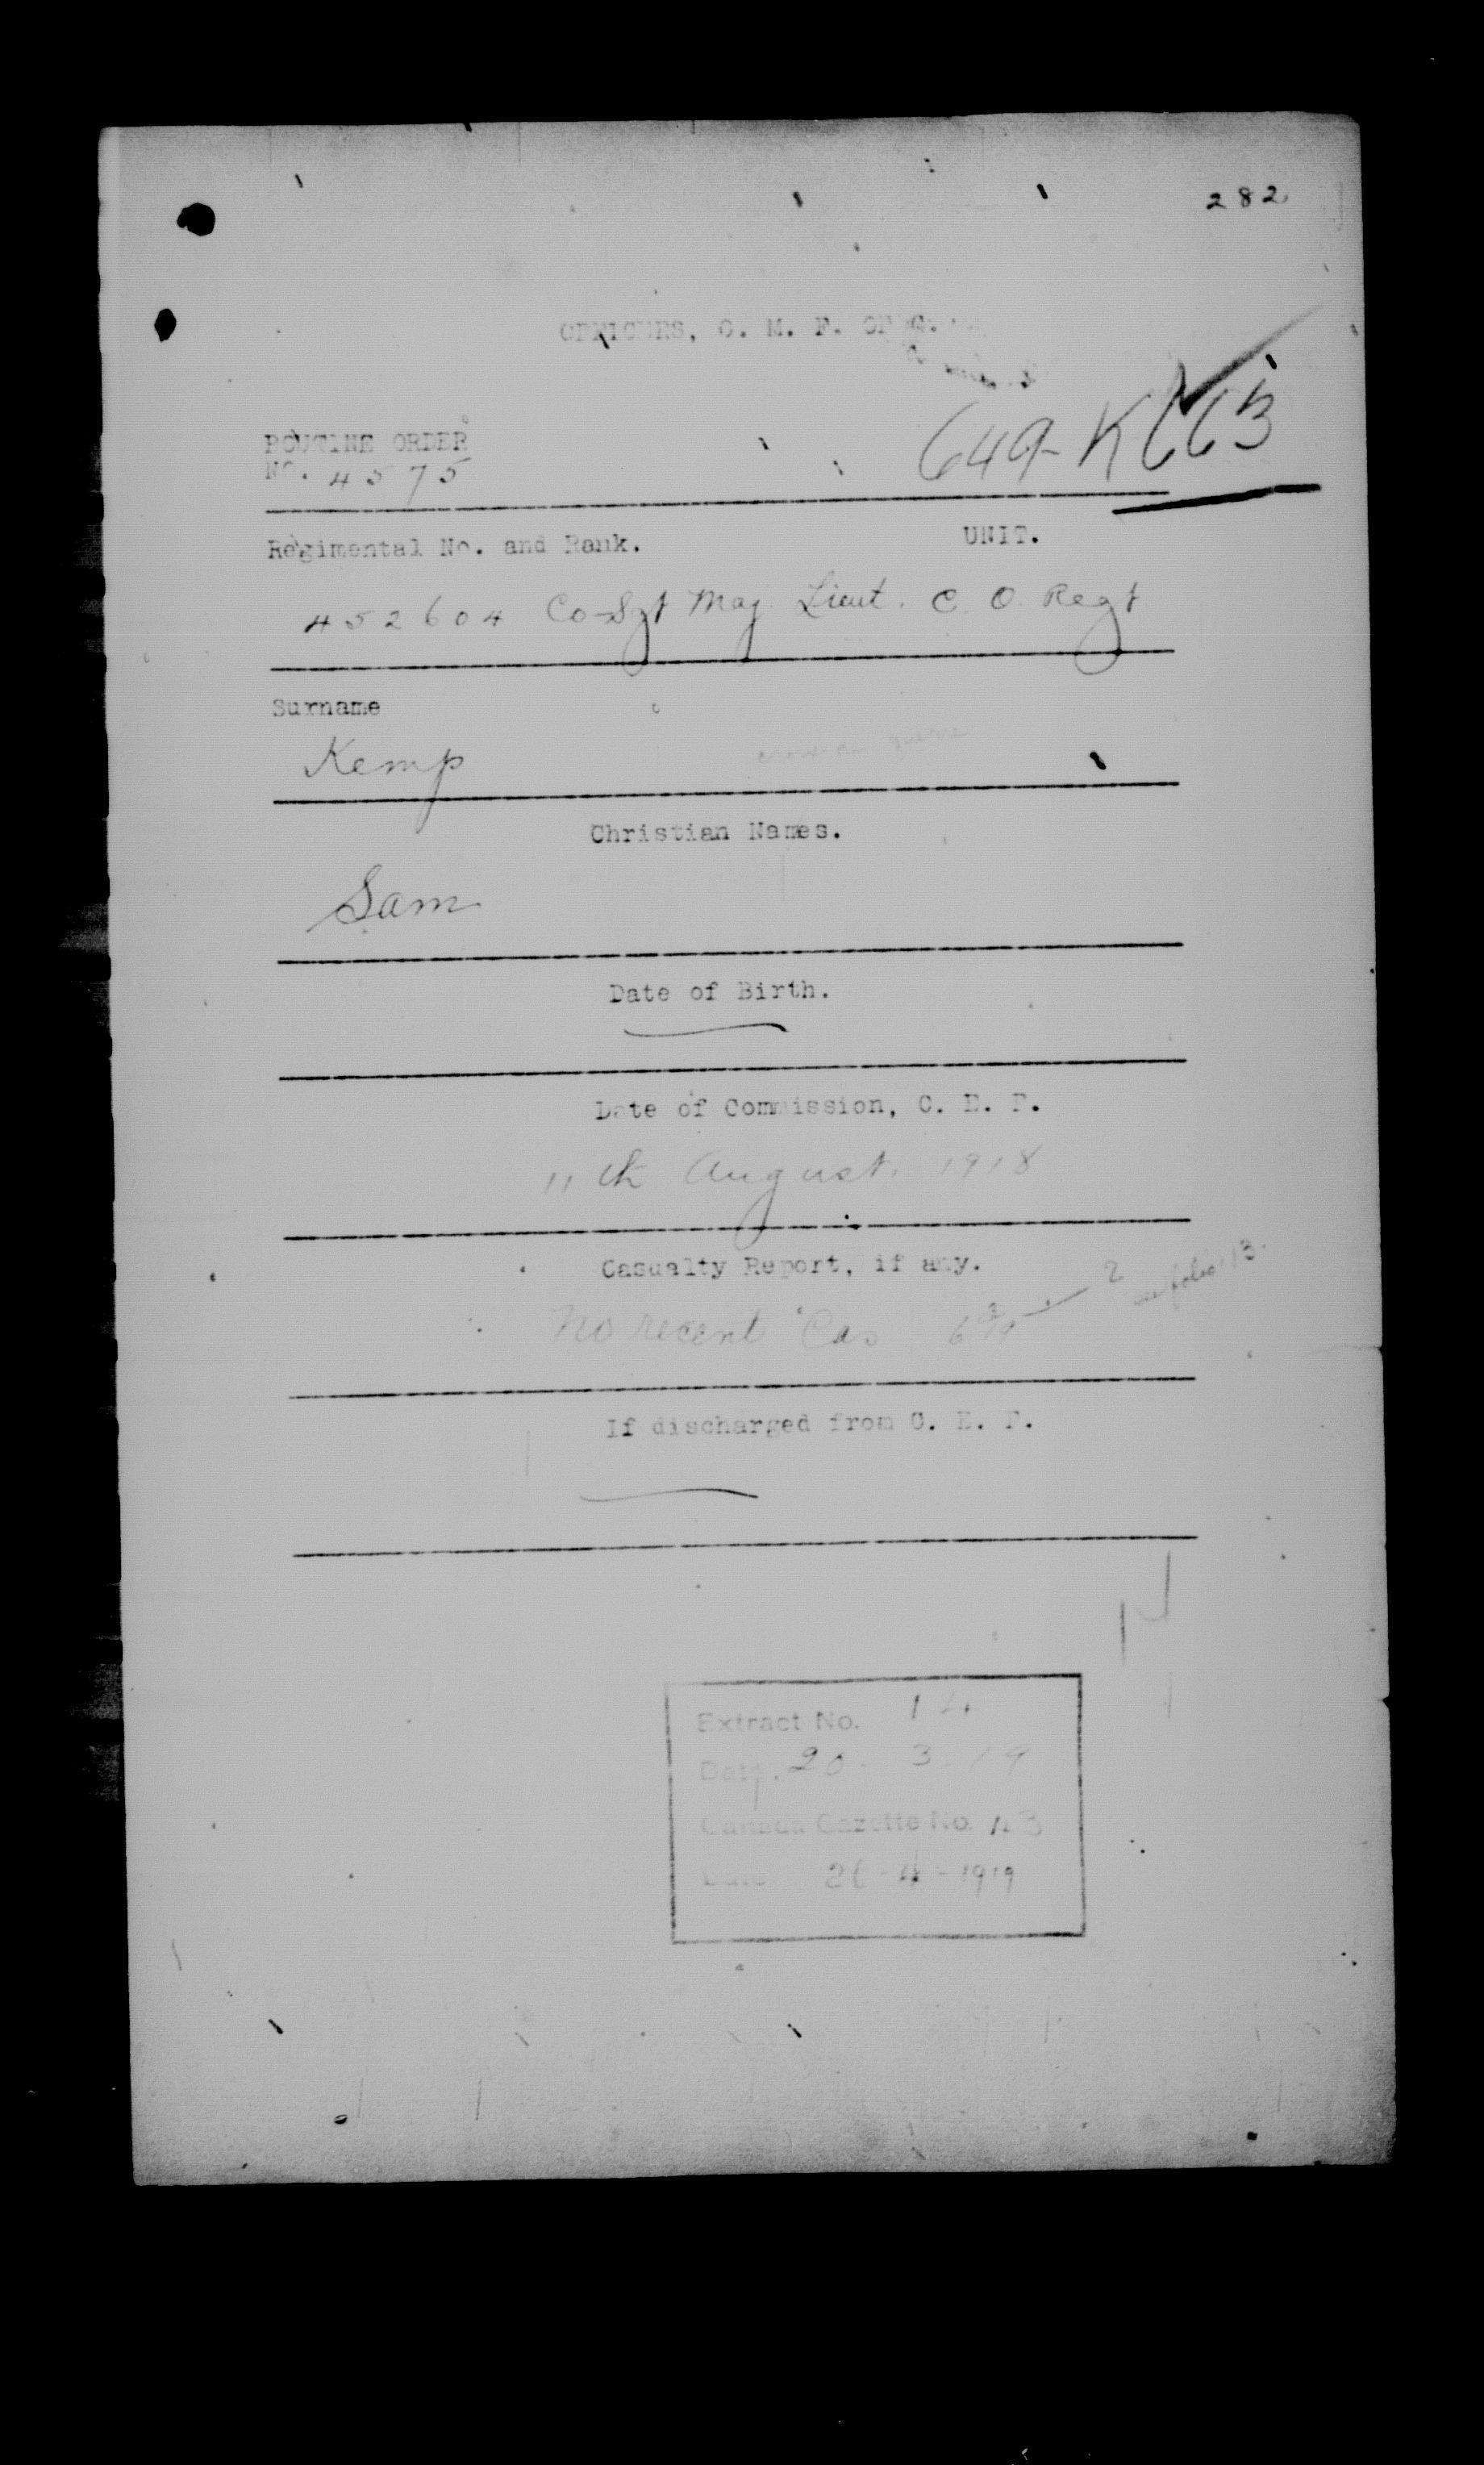 282
OFFICERS, O. M. F. OF C.
649-K663
ROUTINE ORDER
NO. 4575
Regimental No. and Rank. UNIT.
452604 Co-Sgt Maj Lieut. C. O. Regt
Surname
Kemp
Christian Names.
Sam
Date of Birth.
Date of Commission, C. E. F.
11th August. 1918
Casualty Report, if any.
No recent Cas
If discharged from C. E. F.
Extract No. 14
Date. 20. 3. 19
Canada Gazette No. 43
Date 26-4-1919